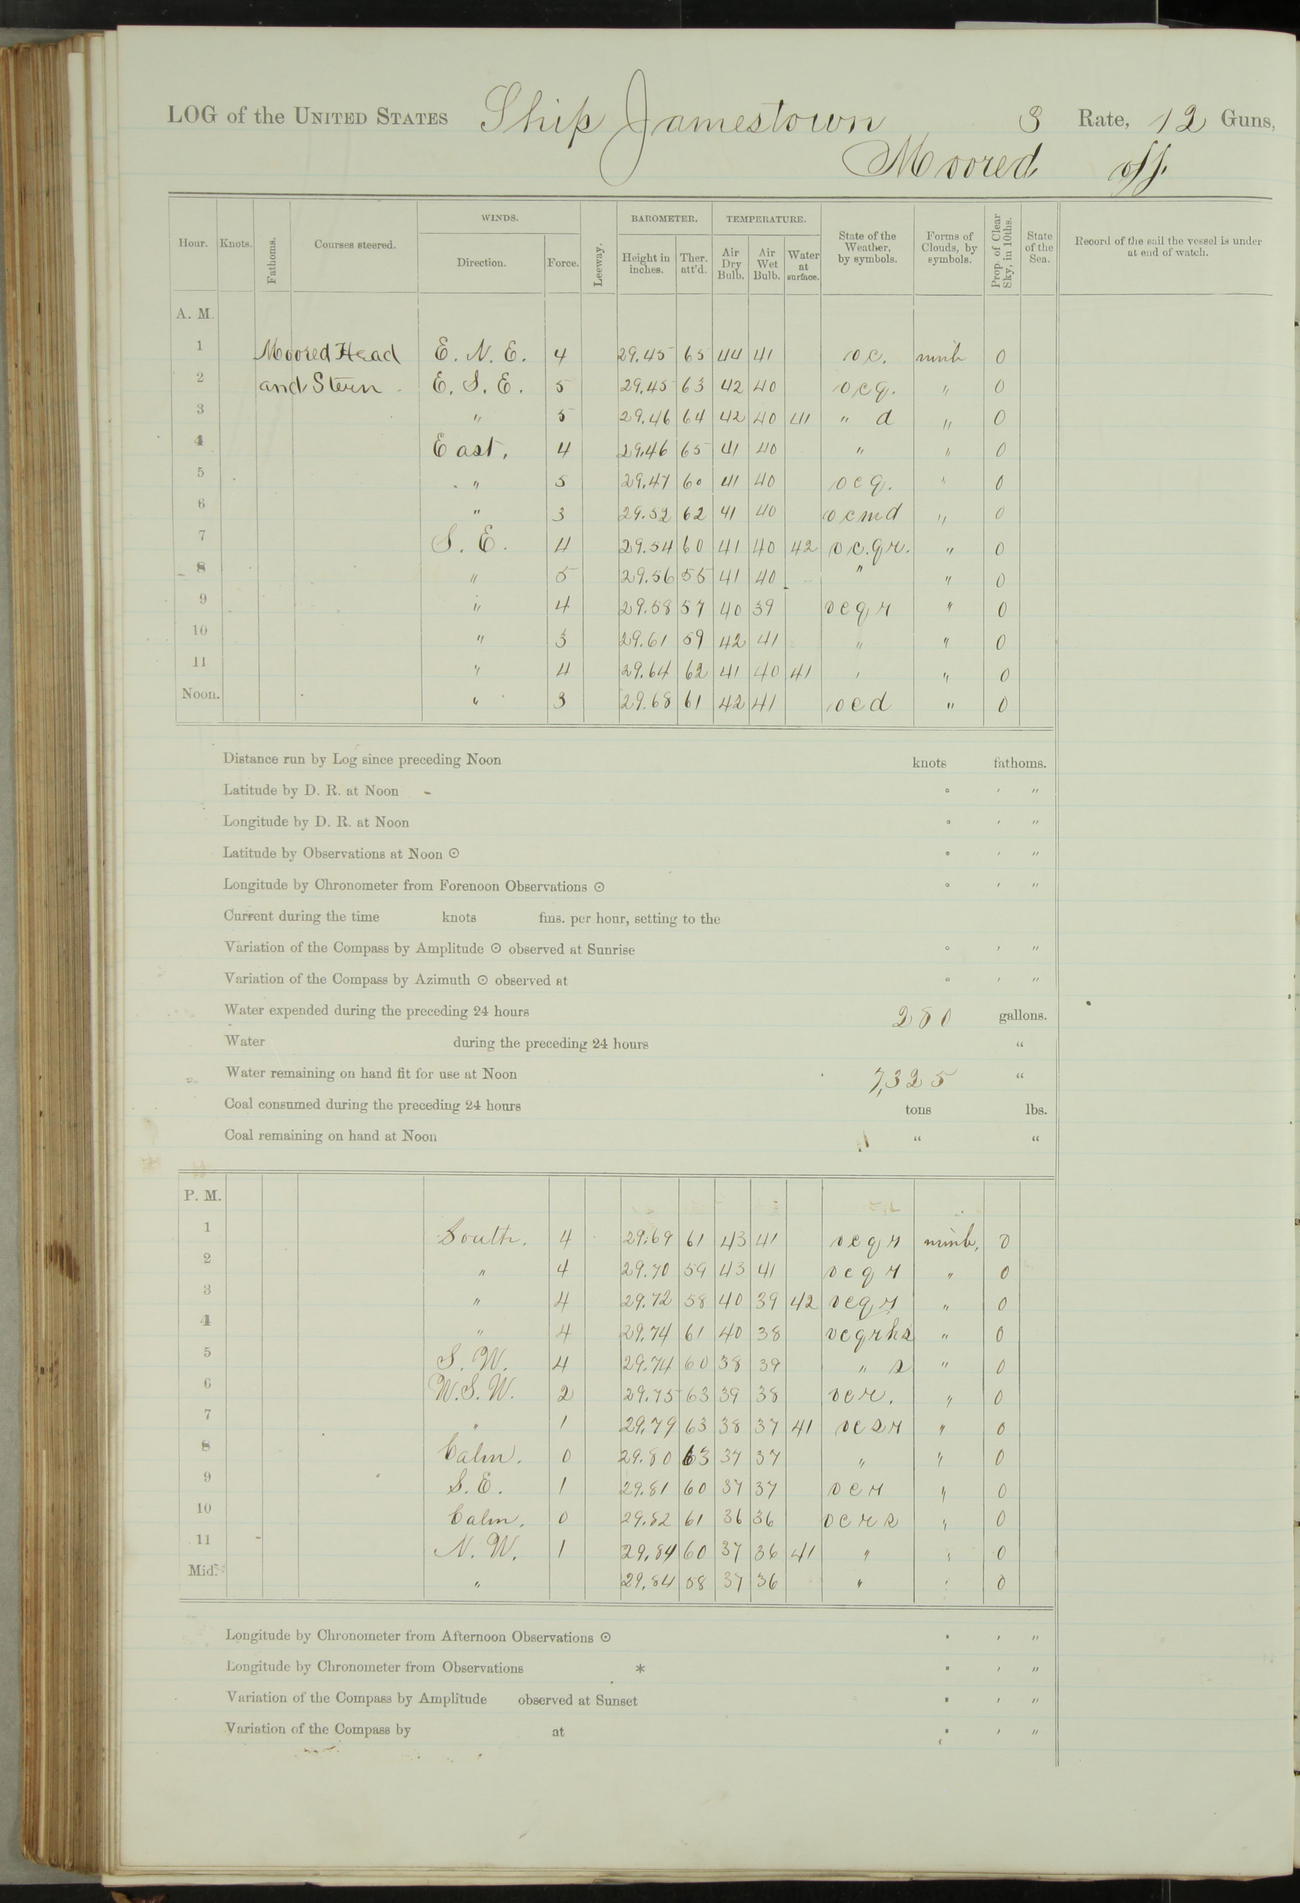 LOG of the UNITED STATES Ship Jamestown 3 Rate, 12 Guns,
Moored off
Hour. Knots. Fathoms. Courses steered. WINDS. Direction. Force. Leeway. BAROMETER. Height in inches. Ther. att'd. TEMPERATURE. Air Dry Bulb. Air Wet Bulb. Water at surface. State of the Weather, by symbols. Forms of Clouds, by symbols. Prop. of Clear Sky, in 10ths. State of the Sea. Record of the sail the vessel is under at end of watch.
A. M.
1 Moored Head E. N. E. 4 29.45 65 44 41 oc. nimb 0
2 and Stern E. S. E. 5 29.45 63 42 40 ocq. " 0
3 " 5 29.46 64 42 40 41 " d " 0
4 East. 4 29.46 65 41 40 " " 0
5 " 5 29.47 60 41 40 ocq. " 0
6 " 3 29.52 62 41 40 ocmd " 0
7 S. E. 4 29.54 60 41 40 42 oc.qr. " 0
8 " 5 29.56 55 41 40 " " 0
9 " 4 29.58 57 40 39 ocqr " 0
10 " 3 29.61 59 42 41 " " 0
11 " 4 29.64 62 41 40 41 " " 0
Noon. " 3 29.68 61 42 41 ocd " 0
Distance run by Log since preceding Noon knots fathoms.
Latitude by D. R. at Noon ° ′ ″
Longitude by D. R. at Noon ° ′ ″
Latitude by Observations at Noon ⊙ ° ′ ″
Longitude by Chronometer from Forenoon Observations ⊙ ° ′ ″
Current during the time knots fms. per hour, setting to the
Variation of the Compass by Amplitude ⊙ observed at Sunrise ° ′ ″
Variation of the Compass by Azimuth ⊙ observed at ° ′ ″
Water expended during the preceding 24 hours 280 gallons.
Water during the preceding 24 hours "
Water remaining on hand fit for use at Noon 7,325 "
Coal consumed during the preceding 24 hours tons lbs.
Coal remaining on hand at Noon " "
P. M.
1 South. 4 29.69 61 43 41 ocqr nimb. 0
2 " 4 29.70 59 43 41 ocqr " 0
3 " 4 29.72 58 40 39 42 ocqr " 0
4 " 4 29.74 61 40 38 ocqrhs " 0
5 S. W. 4 29.74 60 38 39 " s " 0
6 W.S.W. 2 29.75 63 39 38 ocr. " 0
7 " 1 29.79 63 38 37 41 ocsr " 0
8 Calm. 0 29.80 63 37 37 " " 0
9 S. E. 1 29.81 60 37 37 ocr " 0
10 Calm. 0 29.82 61 36 36 ocrs " 0
11 N. W. 1 29.84 60 37 36 41 " " 0
Mid. " 29.84 58 37 36 " " 0
Longitude by Chronometer from Afternoon Observations ⊙ ° ′ ″
Longitude by Chronometer from Observations * ° ′ ″
Variation of the Compass by Amplitude observed at Sunset ° ′ ″
Variation of the Compass by at ° ′ ″